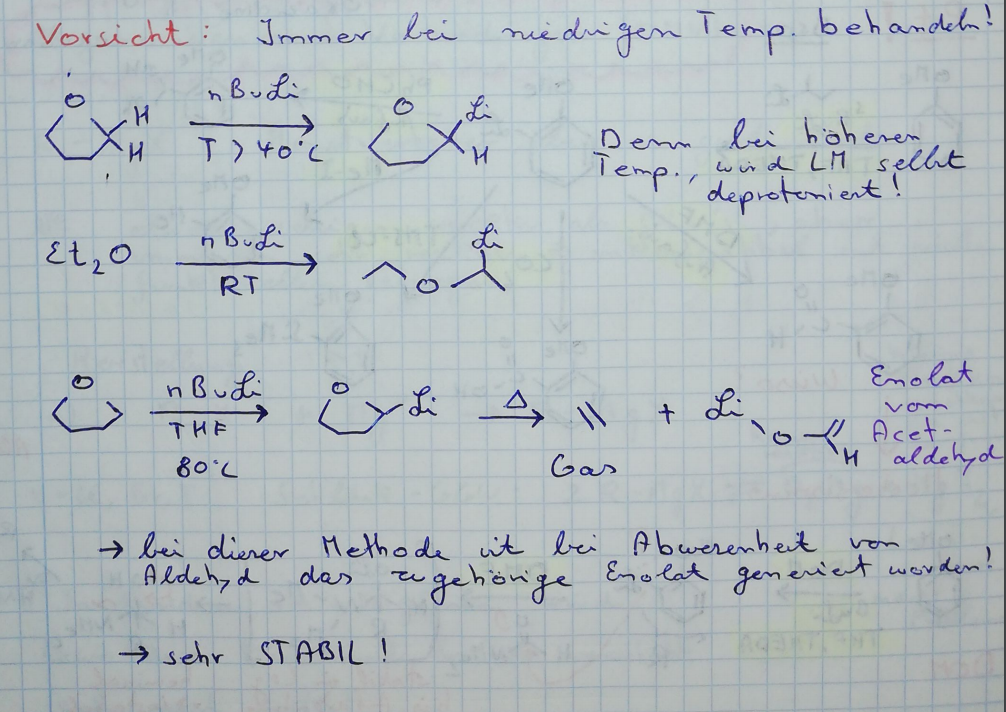 Vorsicht: Immer bei niedrigen Temp. behandeln!
O H nBuLi O Li
H T > 40°C H
Denn bei höheren
Temp., wird LM selbst
deprotoniert!
Et2O nBuLi Li
RT O
O nBuLi O Li Δ + Li O H
THF
80°C Gas
Enolat
vom
Acet-
aldehyd
→ bei dieser Methode ist bei Abwesenheit von
Aldehyd das zugehörige Enolat generiert worden!
→ sehr STABIL!